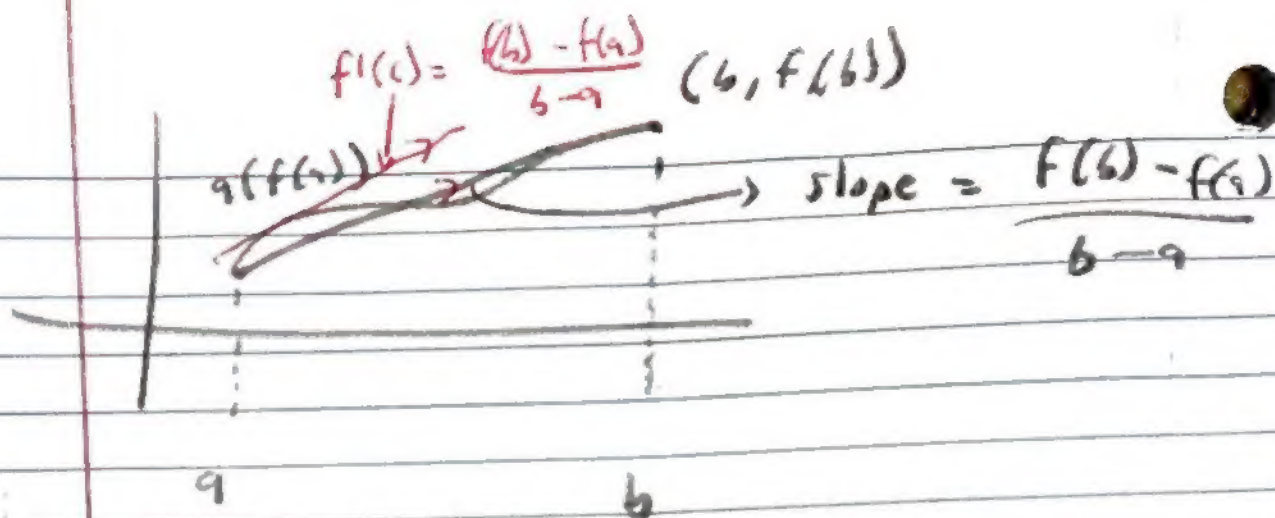 f'(c) = f(b) - f(a) / b - a
(b, f(b))
a(f(a))
slope = f(b) - f(a) / b - a
a b